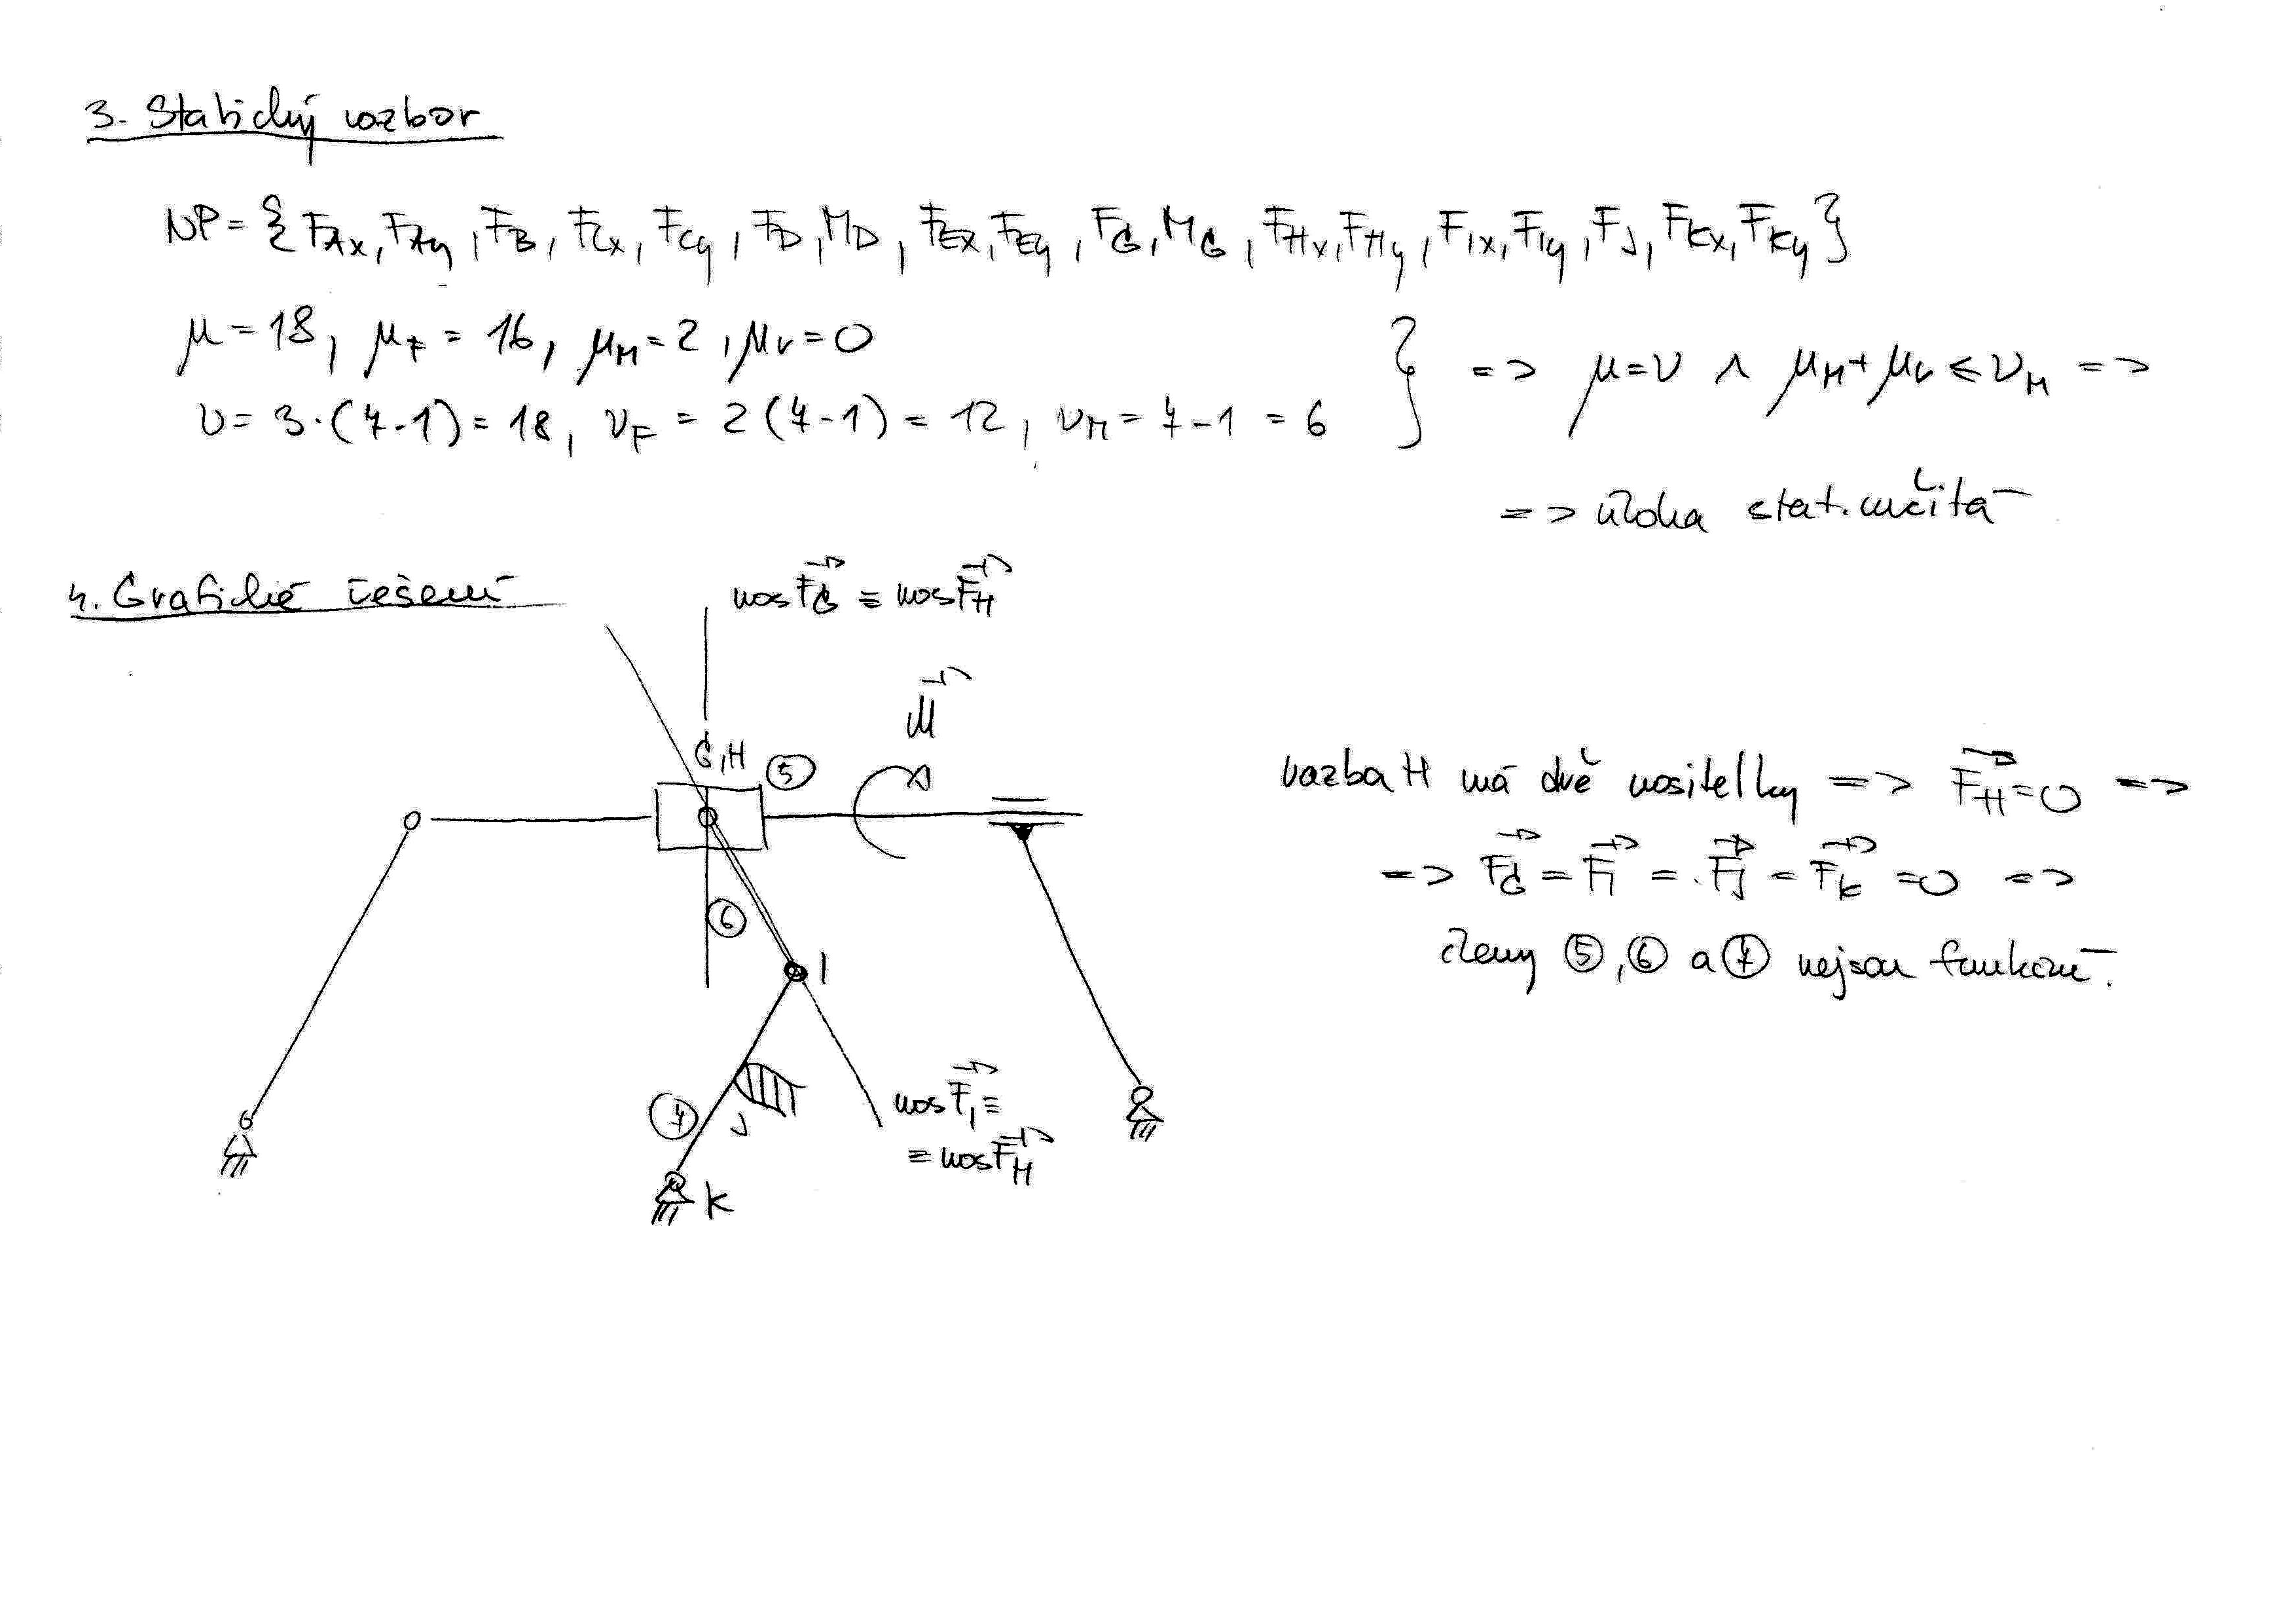 3. Statický rozbor
NP = { FAx, FAy, FB, FCx, FCy, FD, MD, FEx, FEy, FG, MG, FHx, FHy, FIx, FIy, FJ, FKx, FKy }
μ = 18, μF = 16, μM = 2, μr = 0
ν = 3·(7-1) = 18, νF = 2(7-1) = 12, νM = 7-1 = 6
} => μ = ν ∧ μM + μr ≤ νM =>
=> úloha stat. určitá
4. Grafické řešení
nos F⃗G ≡ nos F⃗H
M⃗
G,H
5
6
I
7
J
K
nos F⃗I ≡
≡ nos F⃗H
vazba H má dvě nositelky => F⃗H = 0 =>
=> F⃗G = F⃗I = F⃗J = F⃗K = 0 =>
členy ⑤, ⑥ a ⑦ nejsou funkční.